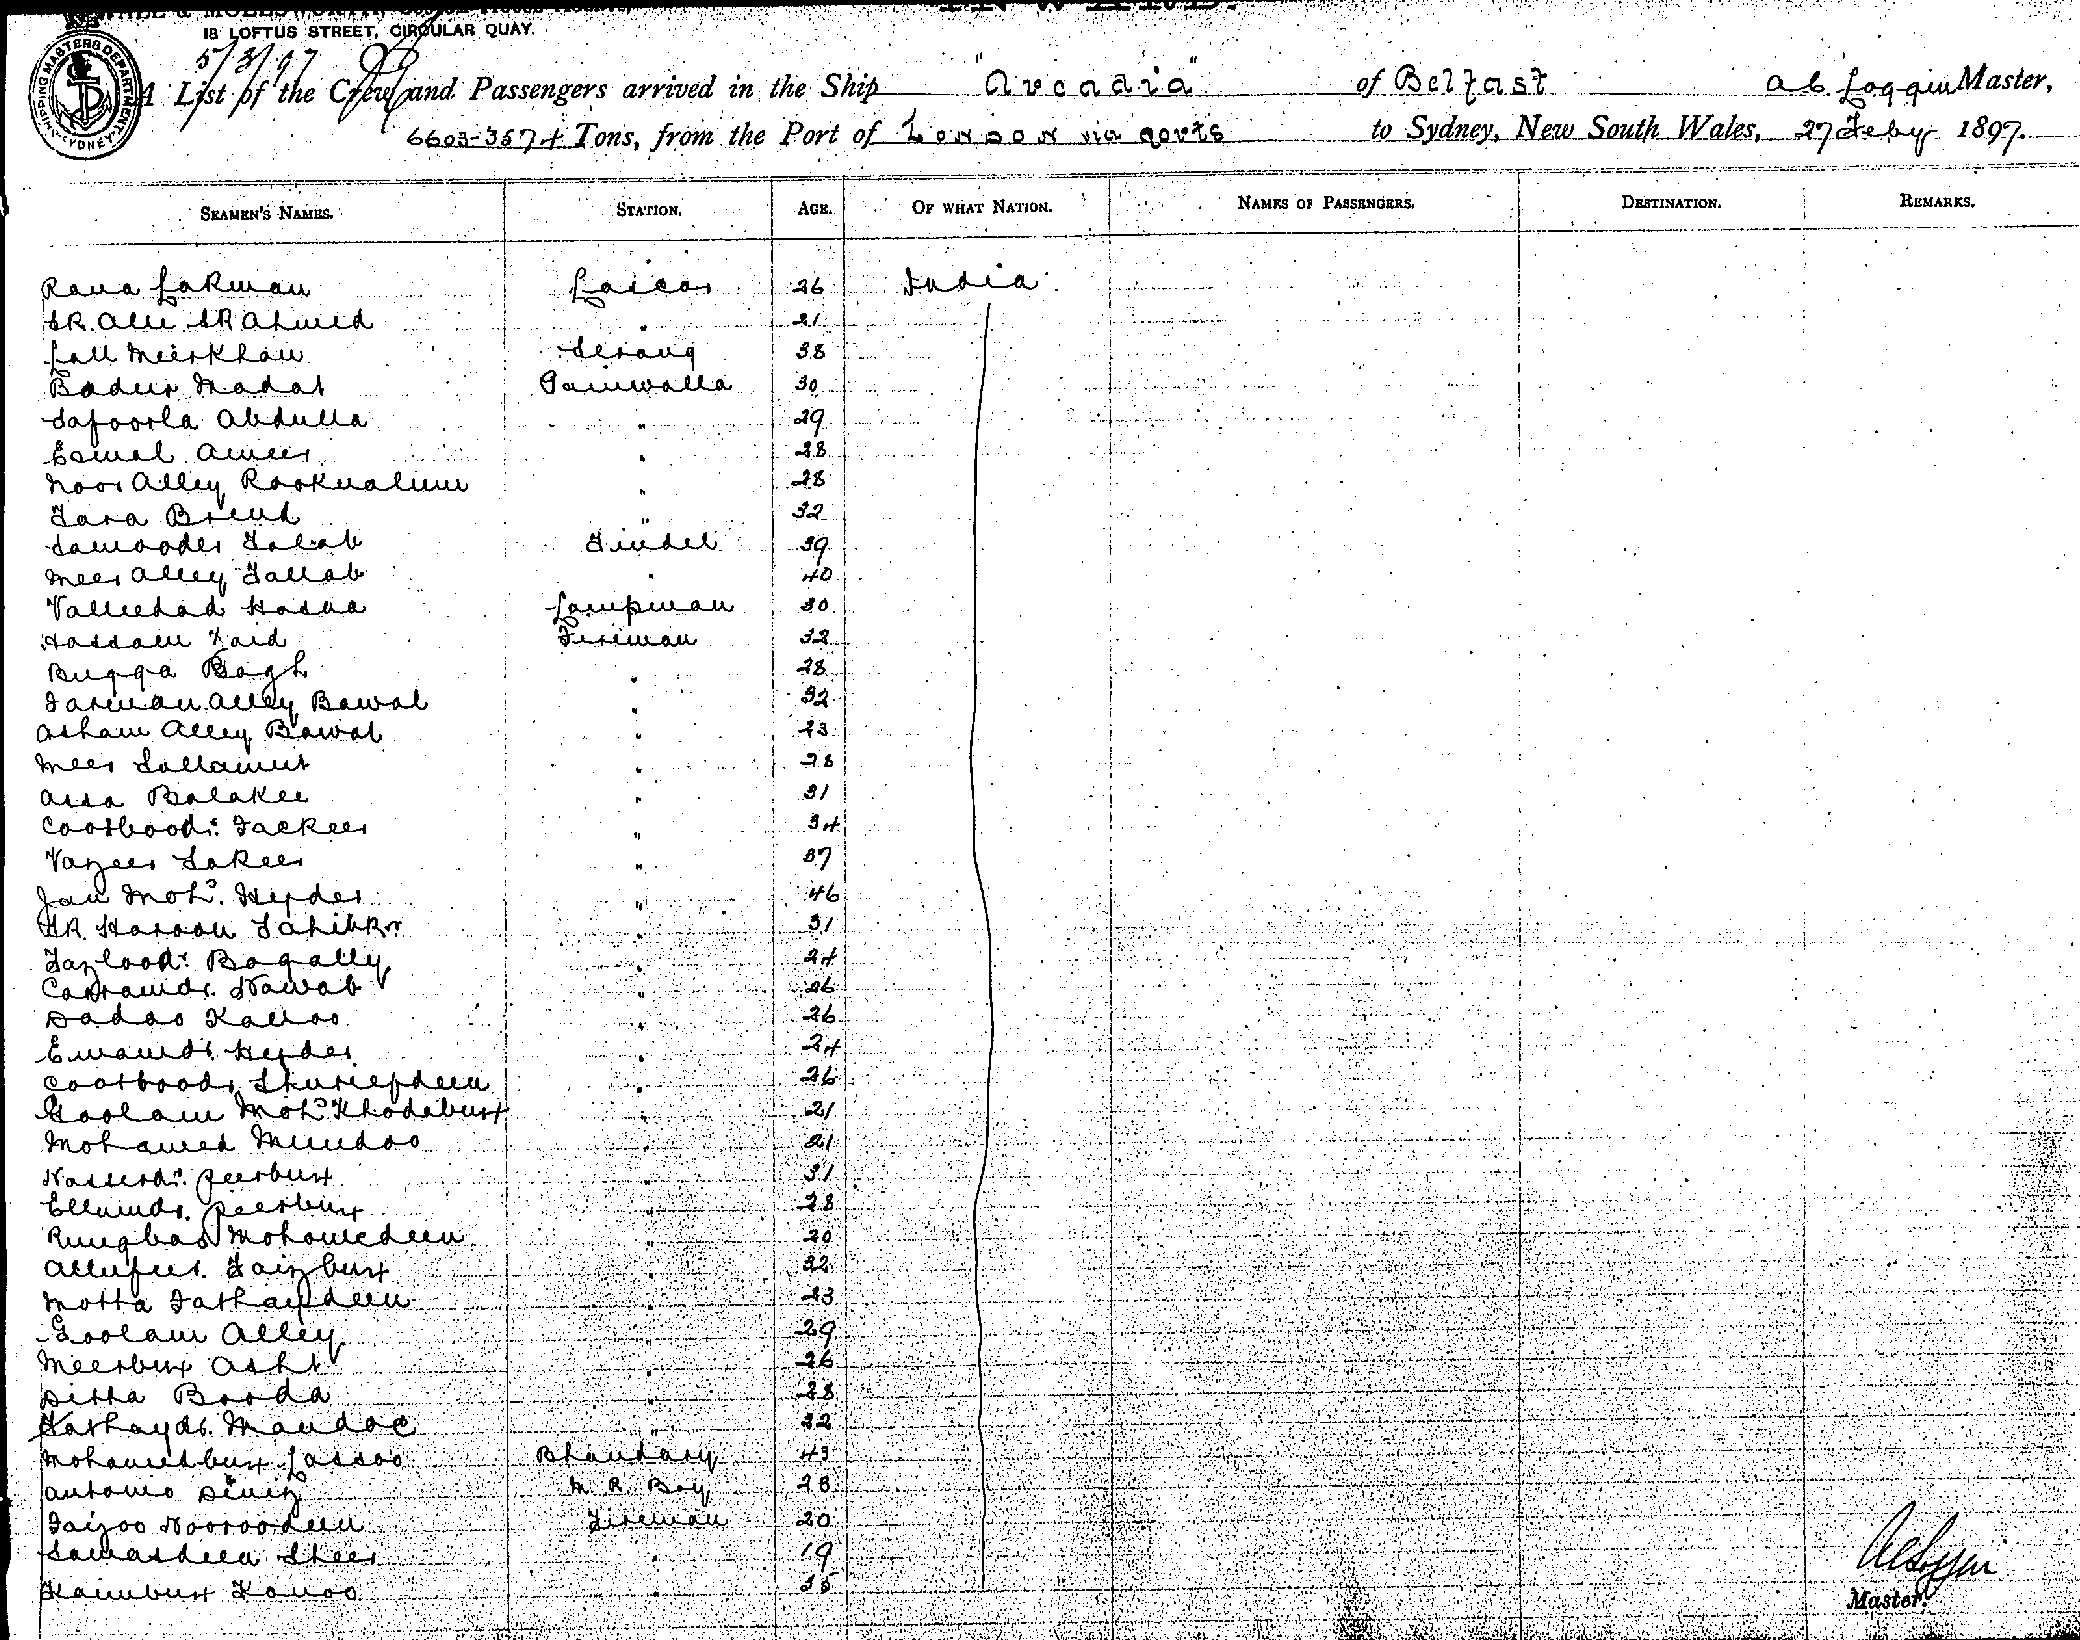 18 LOFTUS STREET, CIRCULAR QUAY.
5/3/97
A List of the Crew and Passengers arrived in the Ship "Arcadia" of Belfast A C Loggin Master,
6603-3574 Tons, from the Port of London via ports to Sydney, New South Wales, 27 Feby 1897.
SHIPPING MASTERS DEPARTMENT SYDNEY
SEAMEN'S NAMES. STATION. AGE. OF WHAT NATION. NAMES OF PASSENGERS. DESTINATION. REMARKS.
Rana Lakman Lascar 26 India
SK. Allee SK Ahmed " 21
Lall Meerkhan Serang 38
Badur Madat Paniwalla 30
Safoorla Abdulla " 29
Esmal Ameer " 28
Noor Alley Rooknalum " 28
Tara Breut " 32
Samooder Talab Tindel 39
Meer Alley Tallab " 40
Valleedad Hosna Lampman 30
Hassam Zaid Fireman 32
Bugga Bagh " 28
Farman Alley Bawal " 32
Asham Alley Bawal " 23
Meer Sallamut " 28
Assa Balakee " 31
Cootboodn. Fackeer " 34
Vazeer Fakeer " 37
Jan Mohd. Hyder " 46
SK. Haroon Sahibkr " 31
Fazloodn. Bagally " 24
Carramdn. Nawab " 26
Dadao Kalloo " 26
Emamdn. Hyder " 24
Cootboodn. Shuriefdeen " 26
Goolam Mohd. Khodabux " 21
Mohamed Mundoo " 21
Nasserdn. Peerbux " 31
Ellumdn. Peerbux " 28
Rungbao Mohomedeen " 20
Allufeer Faizbux " 32
Motta Fathaydeen " 23
Goolam Alley " 29
Meerbux Asht " 26
Ditta Booda " 28
Fathaydn. Mandoo " 32
Mohamedbux Lassoo Bhandary 43
Antonio Diniz M. R. Boy 28
Faizoo Nooroodeen Fireman 20
Samasdeen Sheer " 19
Karimbux Kanoo " 35
A C Loggin
Master.